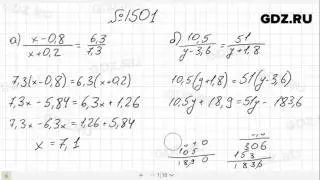 GDZ.RU
№1501
а) (x-0,8)/(x+0,2) = 6,3/7,3
б) 10,5/(y-3,6) = 51/(y+1,8)
7,3(x-0,8)=6,3(x+0,2)
10,5(y+1,8)=51(y-3,6)
7,3x-5,84=6,3x+1,26
10,5y+18,9=51y-183,6
7,3x-6,3x=1,26+5,84
x=7,1
306
153
18,90
183,6